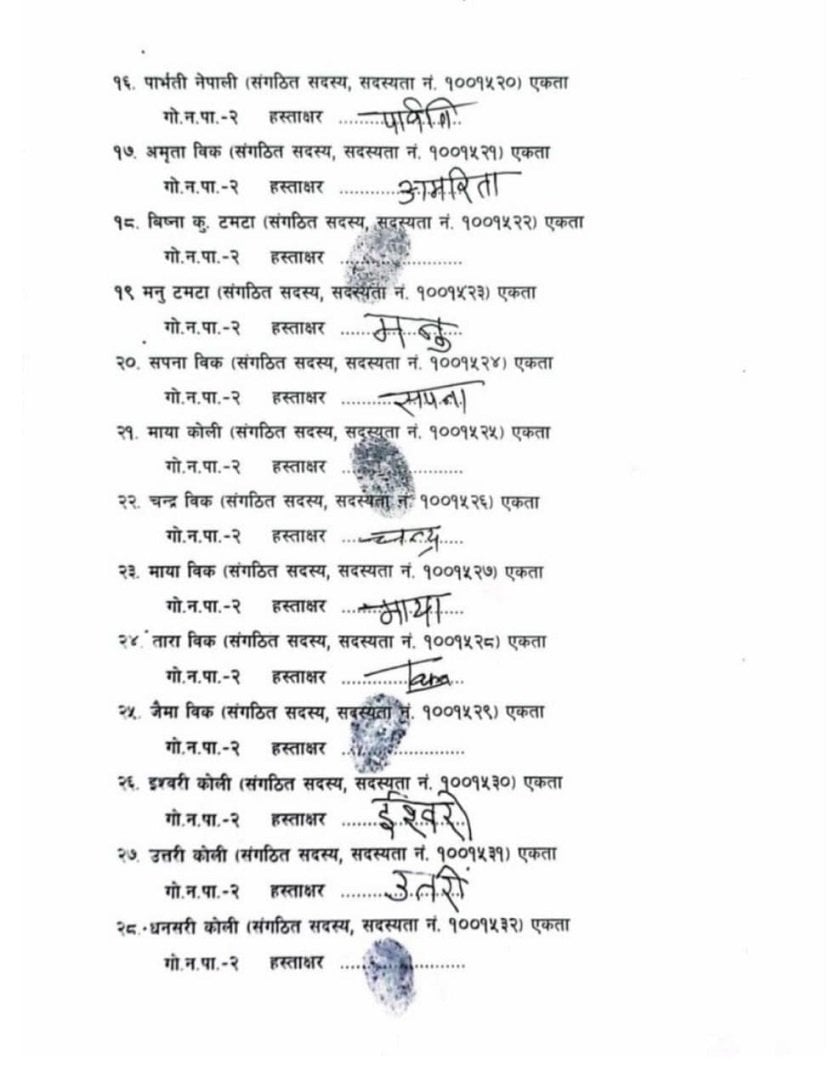 १६. पार्भती नेपाली (संगठित सदस्य, सदस्यता नं. १००१५२०) एकता
गो.न.पा.-२ हस्ताक्षर ............
१७. अमृता विक (संगठित सदस्य, सदस्यता नं. १००१५२१) एकता
गो.न.पा.-२ हस्ताक्षर ............ आमरिता
१८. बिष्ना कु. टमटा (संगठित सदस्य, सदस्यता नं. १००१५२२) एकता
गो.न.पा.-२ हस्ताक्षर ............
१९ मनु टमटा (संगठित सदस्य, सदस्यता नं. १००१५२३) एकता
गो.न.पा.-२ हस्ताक्षर ...... मनु
२०. सपना विक (संगठित सदस्य, सदस्यता नं. १००१५२४) एकता
गो.न.पा.-२ हस्ताक्षर .......... सपना
२१. माया कोली (संगठित सदस्य, सदस्यता नं. १००१५२५) एकता
गो.न.पा.-२ हस्ताक्षर ............
२२. चन्द्र विक (संगठित सदस्य, सदस्यता नं. १००१५२६) एकता
गो.न.पा.-२ हस्ताक्षर ... चन्द्र .....
२३. माया विक (संगठित सदस्य, सदस्यता नं. १००१५२७) एकता
गो.न.पा.-२ हस्ताक्षर ...... माया ....
२४. तारा विक (संगठित सदस्य, सदस्यता नं. १००१५२८) एकता
गो.न.पा.-२ हस्ताक्षर ............. Tara ...
२५. जैमा विक (संगठित सदस्य, सदस्यता नं. १००१५२९) एकता
गो.न.पा.-२ हस्ताक्षर ............
२६. इश्वरी कोली (संगठित सदस्य, सदस्यता नं. १००१५३०) एकता
गो.न.पा.-२ हस्ताक्षर ...... ईश्वरी
२७. उत्तरी कोली (संगठित सदस्य, सदस्यता नं. १००१५३१) एकता
गो.न.पा.-२ हस्ताक्षर ......... उतरी
२८. धनसरी कोली (संगठित सदस्य, सदस्यता नं. १००१५३२) एकता
गो.न.पा.-२ हस्ताक्षर ............